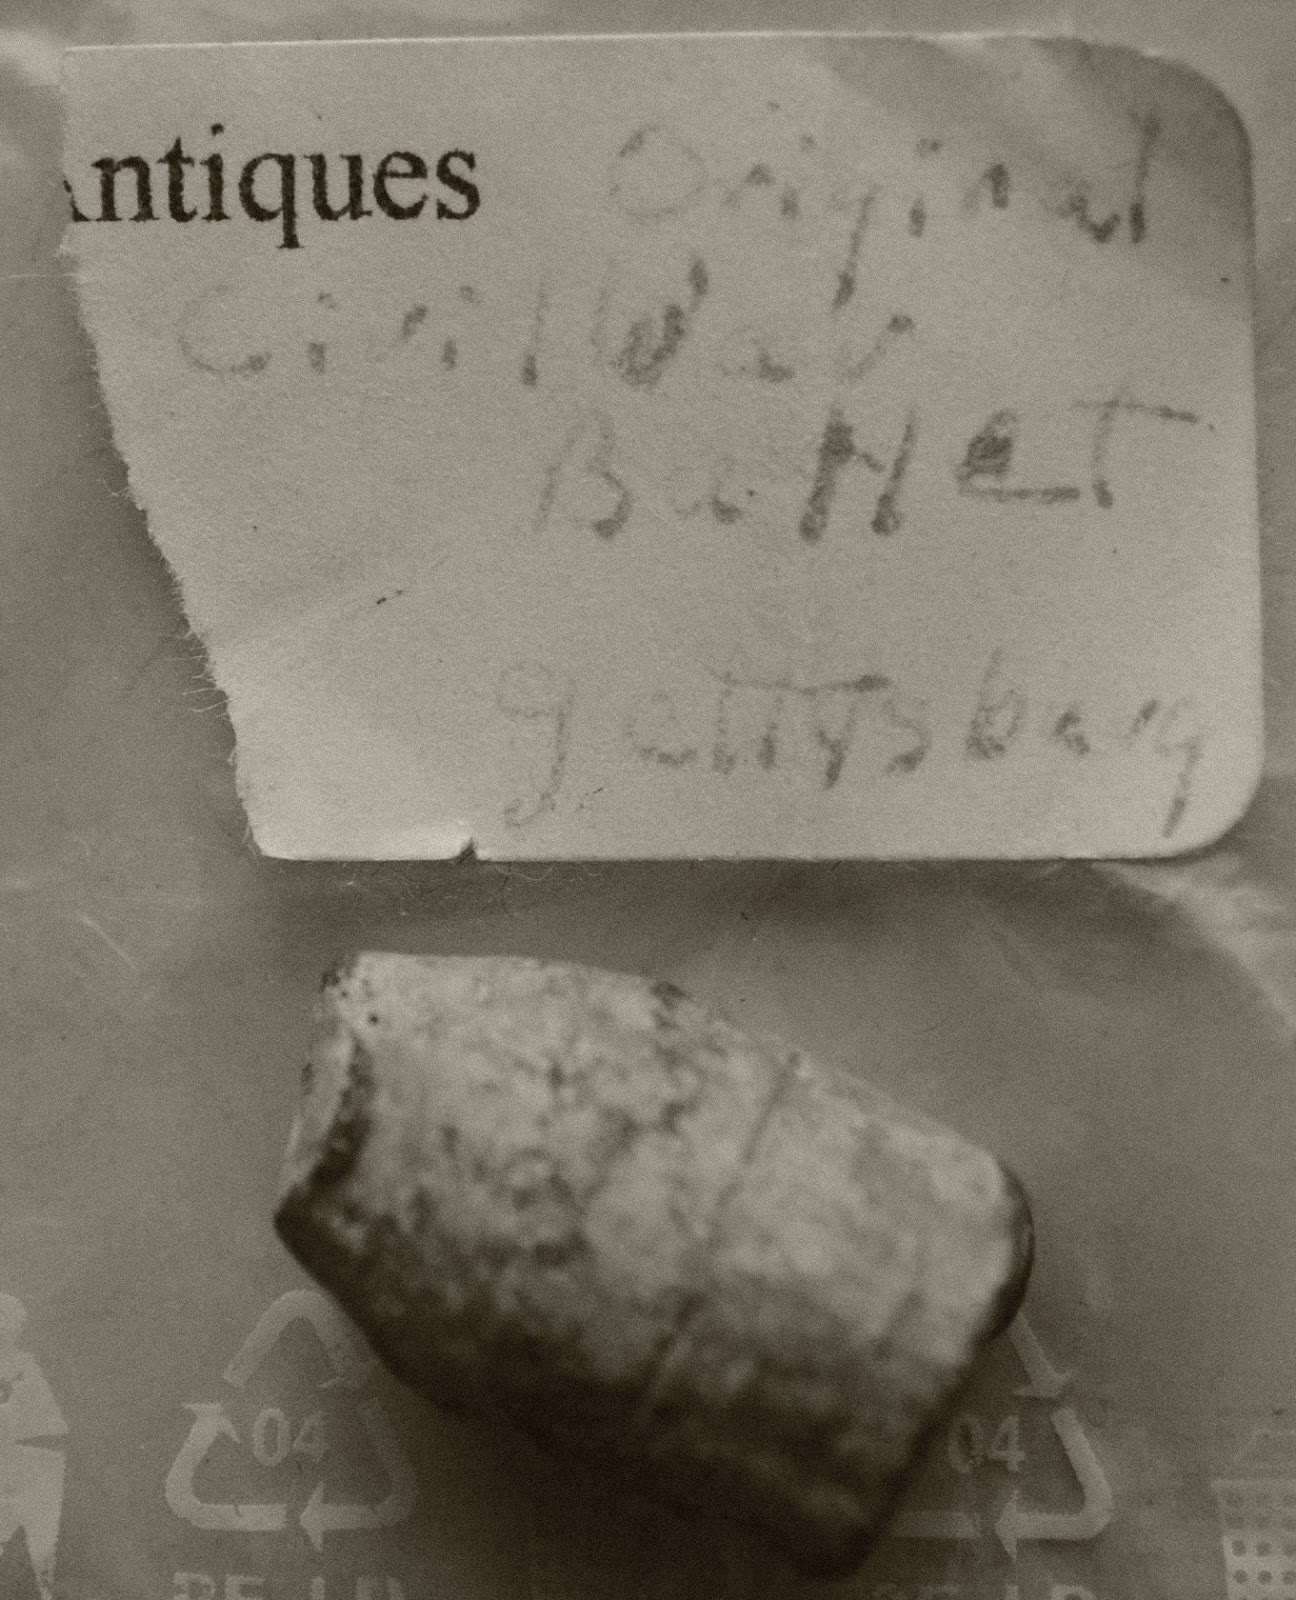 Antiques Original
Civil War
Bullet
gettysburg
04 04